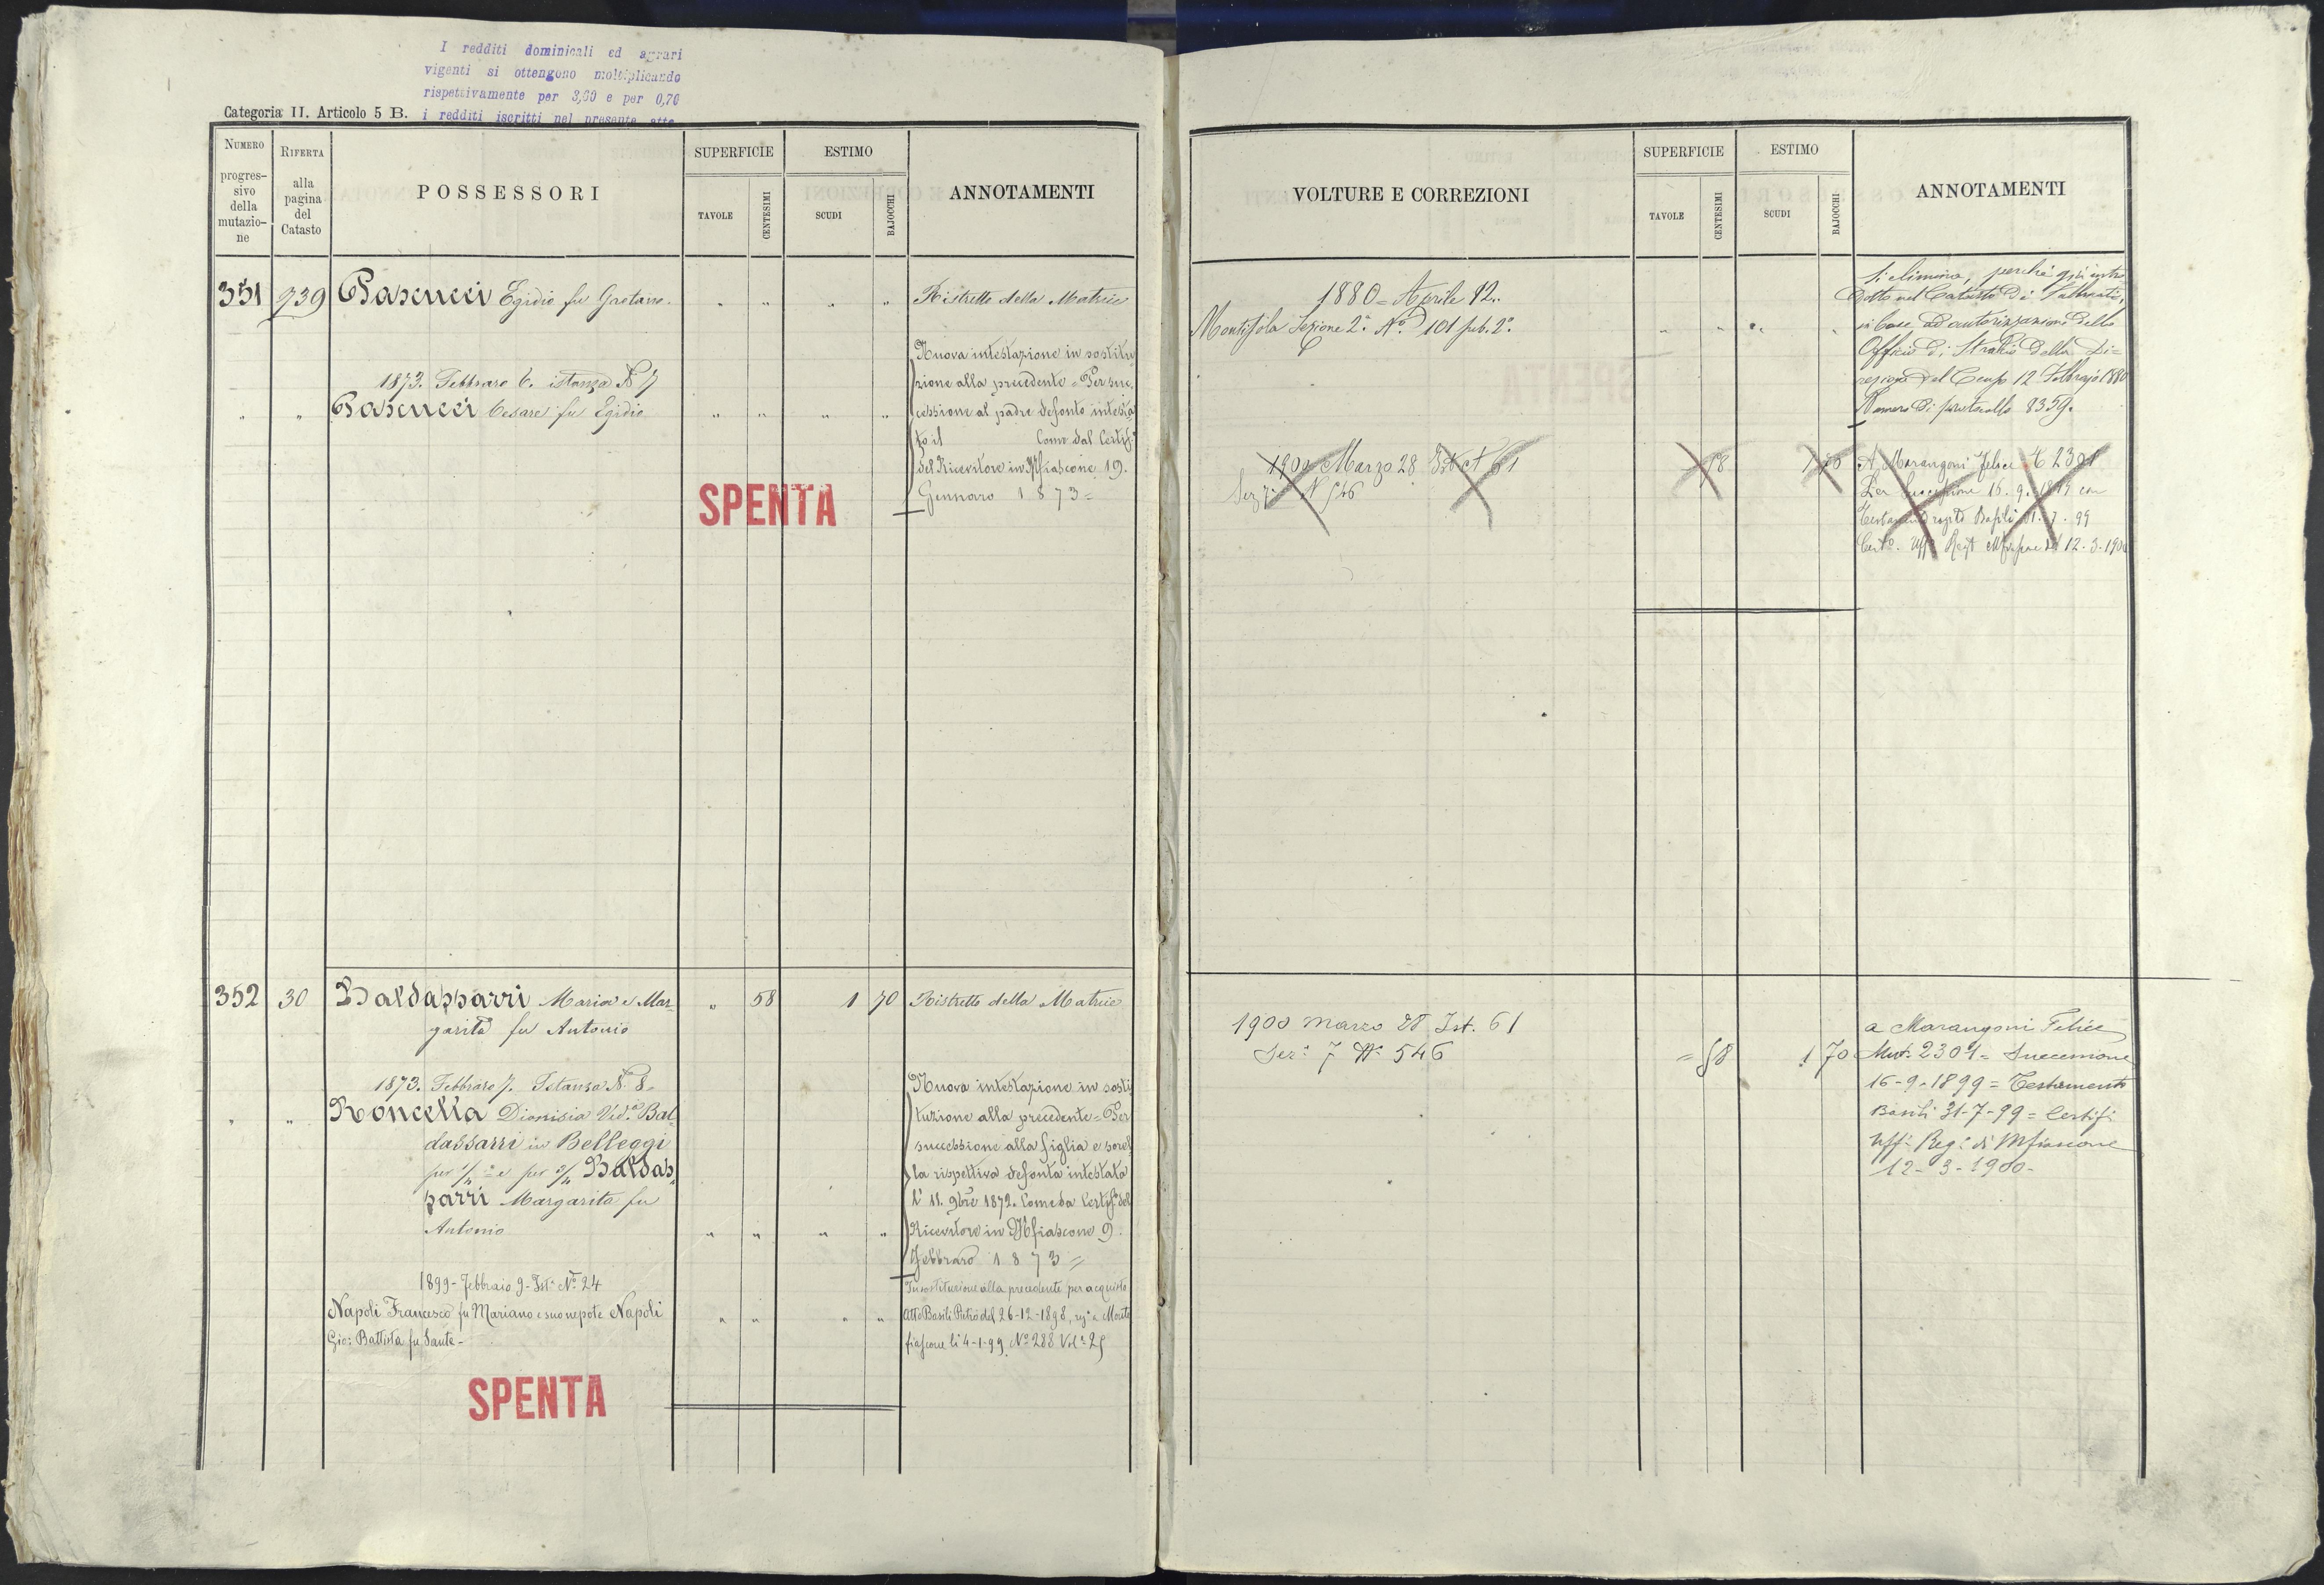 I redditi dominicali ed agrari
vigenti si ottengono moltiplicando
rispettivamente per 3,60 e per 0,70
i redditi iscritti nel presente atto
Categoria II. Articolo 5 B.
NUMERO progressivo della mutazione
RIFERTA alla pagina del Catasto
POSSESSORI
SUPERFICIE
TAVOLE
CENTESIMI
ESTIMO
SCUDI
BAJOCCHI
ANNOTAMENTI
351 939 Pascucci Egidio fu Gaetano. " " " " Ristretto della Matrice
1873. Febbraro 6. istanza N. 7
" " Pascucci Cesare fu Egidio " " " "
Nuova intestazione in sostitu
zione alla precedente = Per suc
cessione al padre defonto intesta
to il Come dal Certif.
del Ricevitore in Mfiascone 19.
Gennaro 1873 =
SPENTA
352 30 Baldassarri Maria e Mar-
garita fu Antonio
" 58 1 70 Ristretto della Matrice
1873. Febbraro 7. Istanza N. 8.
" " Roncella Dionisia Ved.a Bal
dassarri in Belleggi
per 1/4 e per 3/4 Baldas
sarri Margarita fu
Antonio " " " "
Nuova intestazione in sosti
tuzione alla precedente = Per
successione alla figlia e sorel
la rispettiva defonta intestata
l' 11. 9bre 1872. Come da Certif. del
Ricevitore in Mfiascone 9.
Febbraro 1873 =
1899 - Febbraio 9 - Ist. N. 24
Napoli Francesco fu Mariano e suo nepote Napoli
Gio: Battista fu Sante -
" " " "
In sostituzione alla precedente per acquisto
atto Basili Pietro del 26-12-1898, reg. a Monte
fiascone li 4-1-99 N. 288 Vol. 25
SPENTA
VOLTURE E CORREZIONI
SUPERFICIE
TAVOLE
CENTESIMI
ESTIMO
SCUDI
BAJOCCHI
ANNOTAMENTI
1880 = Aprile 12.
Montisola Sezione 2a. N. 101 sub. 2o. " " " "
Si elimina, perchè già intro
dotto nel Catasto di
in base ad autorizzazione dello
Officio di Stralcio della Di=
rezione del Censo 12 Febbrajo 1880
Numero di protocollo 8359.
1900 Marzo 28 Ist N 61
Sez 7 N 546
58 1 70
A Marangoni Felice M 2301
Per Successione 16. 9. 1899 con
Testamento rogito Basili 31. 7. 99
Cert. Uff. Regt Mfiascone del 12-3-1900
1900 Marzo 28 Ist. 61
Sez. 7 N. 546
= 58 1 70
a Marangoni Felice
Mut. 2301 = Successione
16-9-1899 = Testamento
Basili 31-7-99 = Certifi.
Uff. Reg. di Mfiascone
12-3-1900-